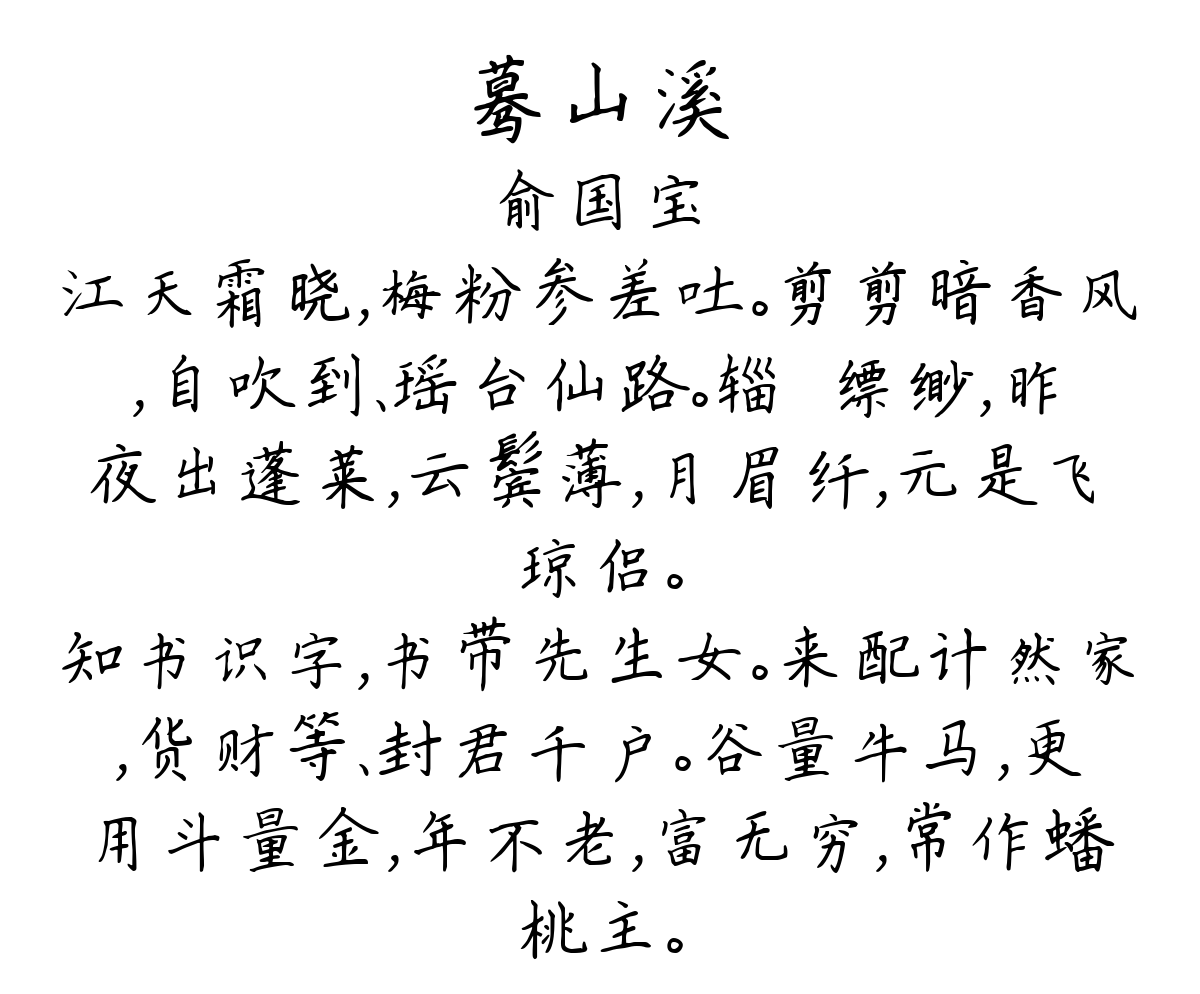 蓦山溪
俞国宝
江天霜晓,梅粉参差吐。剪剪暗香风
,自吹到、瑶台仙路。辎 缥缈,昨
夜出蓬莱,云鬓薄,月眉纤,元是飞
琼侣。
知书识字,书带先生女。来配计然家
,货财等、封君千户。谷量牛马,更
用斗量金,年不老,富无穷,常作蟠
桃主。